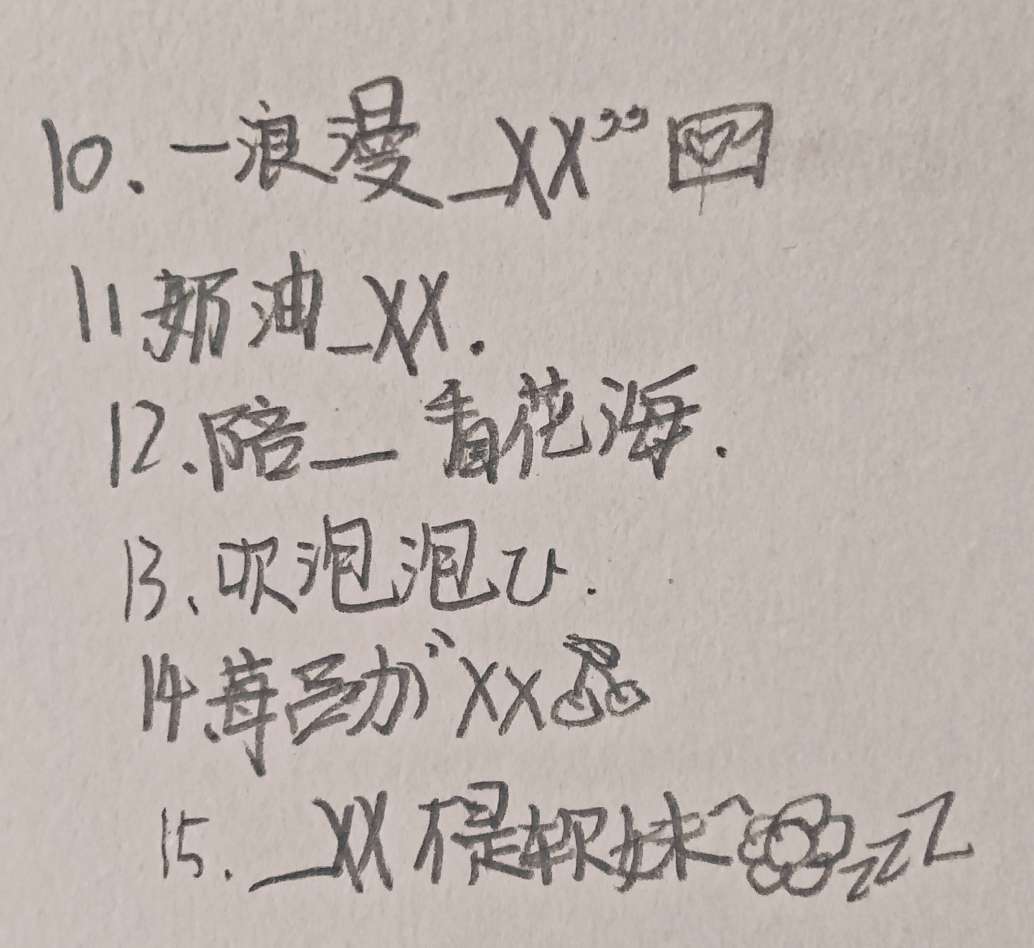 10、一浪漫_XX”
11奶油_XX.
12、陪_看花海.
13、吹泡泡び.
14草莓动”XX
15._XX不是软妹^zzZ